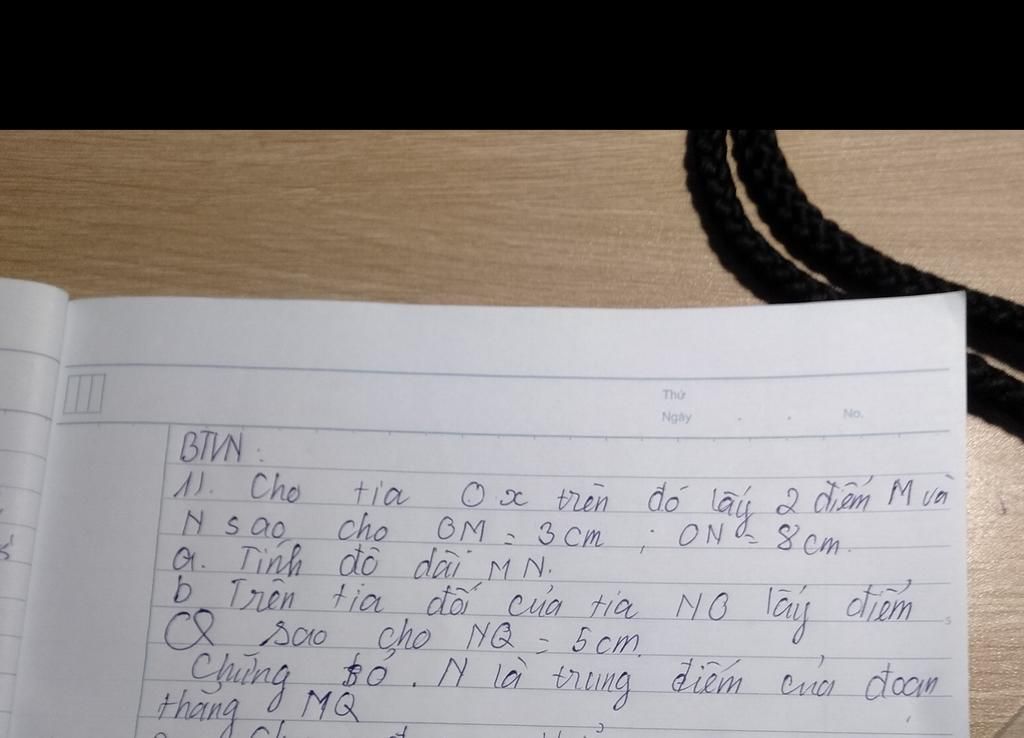 Thứ
Ngày . . No.
BTVN :
1). Cho tia Ox trên đó lấy 2 điểm M và
N sao cho OM = 3cm ; ON = 8cm.
a. Tính độ dài MN.
b Trên tia đối của tia NO lấy điểm
Q sao cho NQ = 5cm.
Chứng tỏ. N là trung điểm của đoạn
thẳng MQ